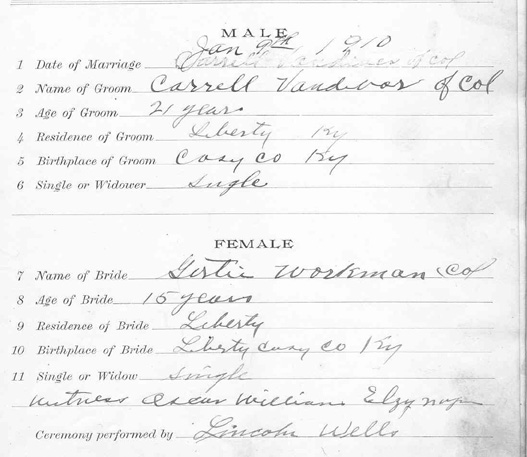 MALE
1 Date of Marriage Jan 9th 1910
2 Name of Groom Carrell Vandivor of Col
3 Age of Groom 21 years
4 Residence of Groom Liberty Ky
5 Birthplace of Groom Casy co Ky
6 Single or Widower single
FEMALE
7 Name of Bride Gertie Workman Col
8 Age of Bride 15 years
9 Residence of Bride Liberty
10 Birthplace of Bride Liberty Casy co Ky
11 Single or Widow single
Witness Oscar William Elzy
Ceremony performed by Lincoln Wells